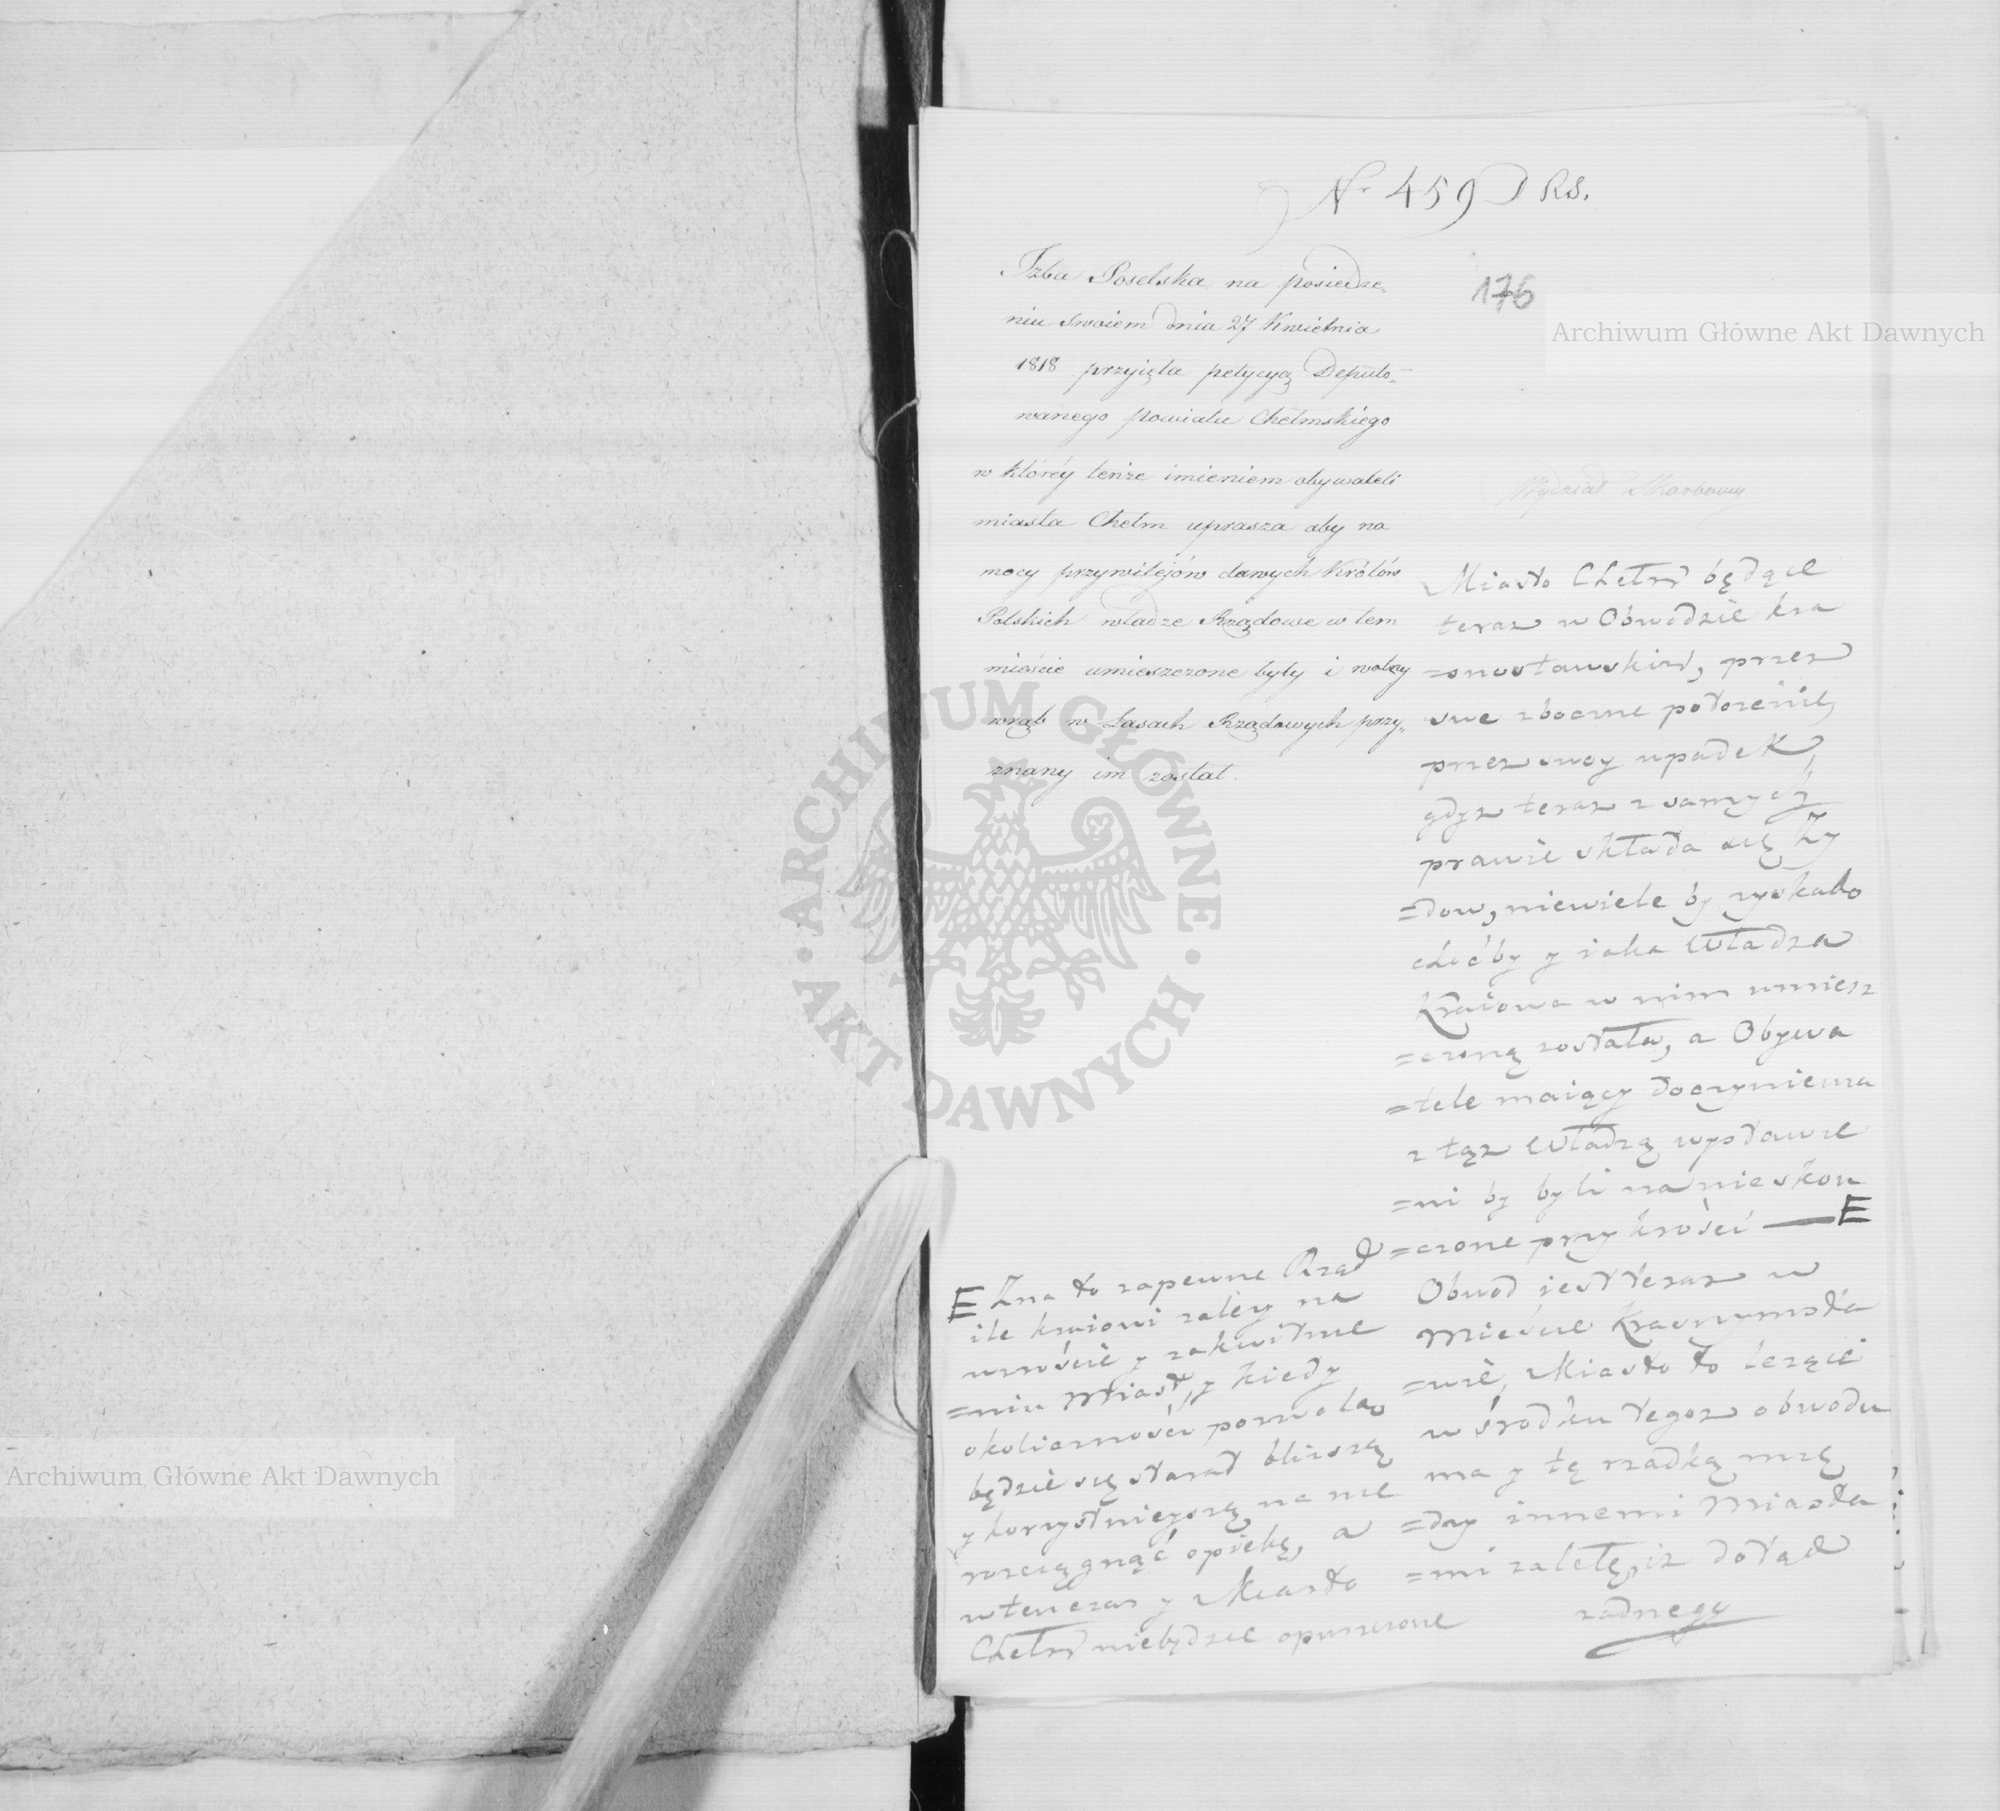 Nr 459 D RS.
176
Archiwum Główne Akt Dawnych
Izba Poselska na posiedze„
niu swoiem dnia 27 Kwietnia
1818 przyięta petycyą Deputo„
wanego powiatu Chełmskiego
w którey tenże imieniem obywateli
miasta Chełm uprasza aby na
mocy przywilejów dawnych Królów
Polskich władze Rządowe w tem
mieście umieszczone były i wolny
wrąb w Lasach Rządowych przy„
znany im został.
Wydział Skarbowy
Miasto Chełm będące
teraz w Obwodzie kra
=snostawskim, przez
swe zboczne położenie,
przez swoy upadek,
gdyż teraz z samych
prawie składa się ży
=dow, niewiele by zyskało
choćby y iaka Władza
Kraiowa w nim umiesz
=czoną została, a Obywa
=tele maiący doczynienia
z tąż Władzą wystawie
=ni by byli na nieskoń
=czone przykrości — E
Obwod iest teraz w
Mieście Krasnymsta
=wie, Miasto to leżące
w środku tegoz obwodu
ma y tę rzadką mię
=dzy innemi Miasta
=mi zaletę, iz dotąd
żadnego
E Zna to zapewne Rząd
ile kraiowi zależy na
wzroście y zakwitnie
=niu Miast, y kiedy
okoliczności pozwolą
będzie się starał bliższą
y korzystnieyszą na nie
rozciągnąć opiekę, a
wtenczas y Miasto
Chełm niebędzie opuszczone
Archiwum Główne Akt Dawnych
ARCHIWUM GŁÓWNE
AKT DAWNYCH